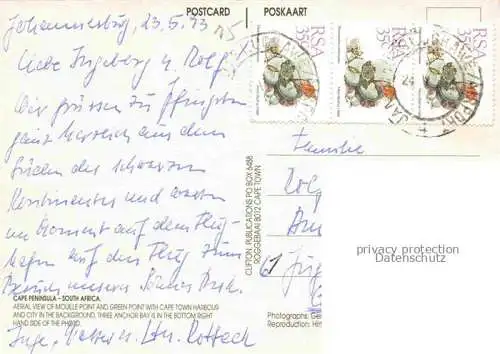 POSTCARD POSKAART
Johannesburg, 23.5.93
Liebe Ingeborg u. Rolf,
Wir grüssen zu Pfingsten
ganz herzlich aus dem
Süden des schwarzen
Kontinentes und warten
im Moment auf dem Flug-
hafen auf den Flug zum
Besuch unseres Sohnes
CAPE PENINSULA – SOUTH AFRICA.
AERIAL VIEW OF MOUILLE POINT AND GREEN POINT WITH CAPE TOWN HARBOUR
AND CITY IN THE BACKGROUND. THREE ANCHOR BAY IS IN THE BOTTOM RIGHT
HAND SIDE OF THE PHOTO.
Inge, u.
CLIFTON PUBLICATIONS PO BOX 6488
ROGGEBAAI 8012 CAPE TOWN
RSA 35c
RSA 35c
RSA 35c
JAN SMUTS
Familie
Rolf
privacy protection
Datenschutz
Photographs:
Reproduction: